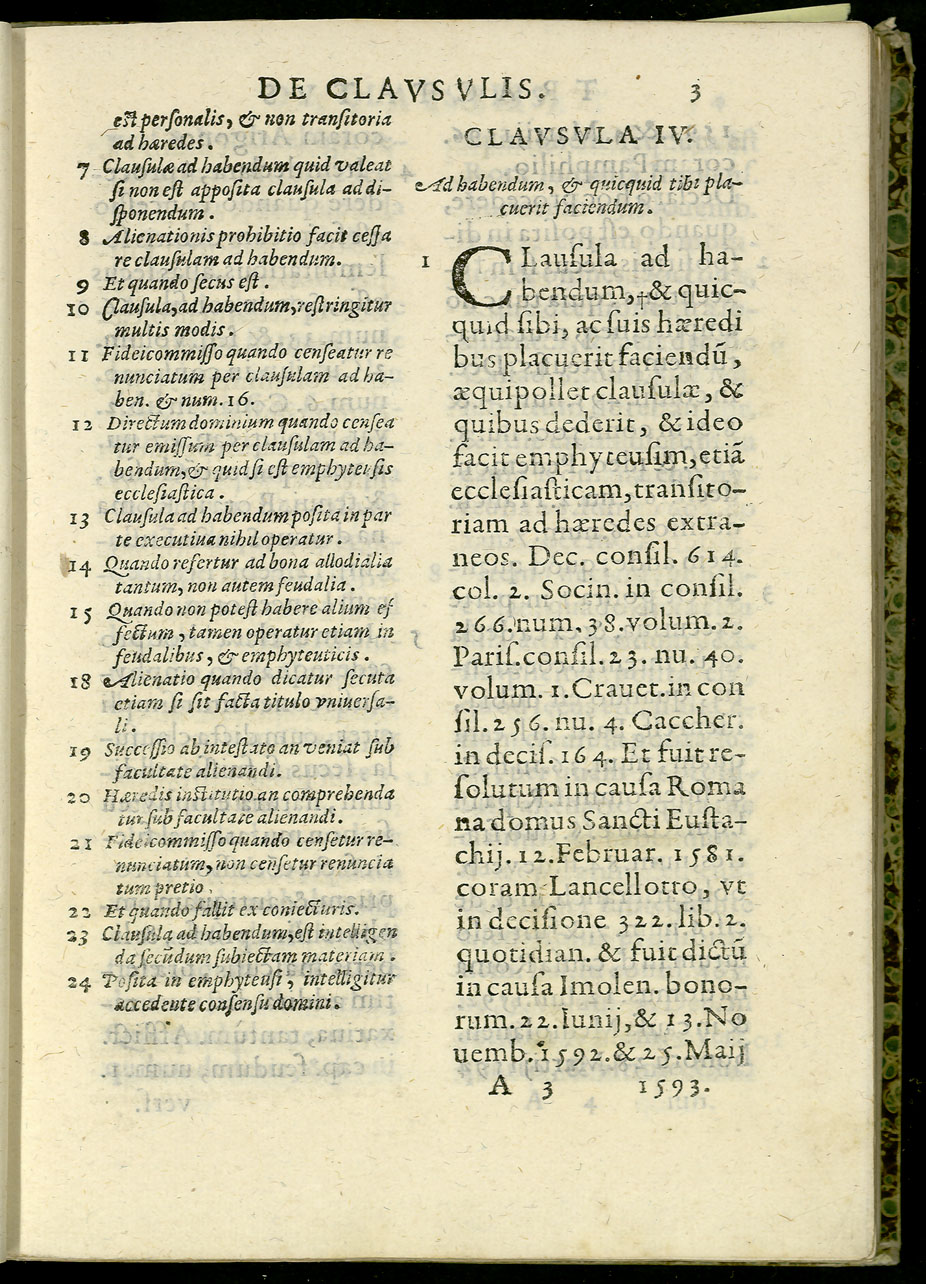 DE CLAVSVLIS. 3
est personalis, & non transitoria
ad hæredes.
7 Clausulæ ad habendum quid valeat
si non est apposita clausula ad di-
sponendum.
8 Alienationis prohibitio facit cessa
re clausulam ad habendum.
9 Et quando secus est.
10 Clausula, ad habendum, restringitur
multis modis.
11 Fideicommisso quando censeatur re
nunciatum per clausulam ad ha-
ben. & num. 16.
12 Directum dominium quando censea
tur emissum per clausulam ad ha-
bendum, & quid si est emphyteusis
ecclesiastica.
13 Clausula ad habendum posita in par
te executiua nihil operatur.
14 Quando refertur ad bona allodialia
tantum, non autem feudalia.
15 Quando non potest habere alium ef
fectum, tamen operatur etiam in
feudalibus, & emphyteuticis.
18 Alienatio quando dicatur secuta
etiam si sit facta titulo vniuersa-
li.
19 Successio ab intestato an veniat sub
facultate alienandi.
20 Hæredis institutio an comprehenda
tur sub facultate alienandi.
21 Fideicommisso quando censetur re-
nunciatum, non censetur renuncia
tum pretio.
22 Et quando fallit ex coniecturis.
23 Clausula ad habendum, est intelligen
da secūdum subiectam materiam.
24 Posita in emphyteusi, intelligitur
accedente consensu domini.
CLAVSVLA IV.
Ad habendum, & quicquid tibi pla-
cuerit faciendum.
1 CLausula ad ha-
bendum, †& quic-
quid sibi, ac suis hæredi
bus placuerit faciendū,
æquipollet clausulæ, &
quibus dederit, & ideo
facit emphyteusim, etiā
ecclesiasticam, transito-
riam ad hæredes extra-
neos. Dec. consil. 614.
col. 2. Socin. in consil.
266. num. 38. volum. 2.
Paris. consil. 23. nu. 40.
volum. 1. Crauet. in con
sil. 256. nu. 4. Caccher.
in decis. 164. Et fuit re-
solutum in causa Roma
na domus Sancti Eusta-
chij. 12. Februar. 1581.
coram Lancellotto, vt
in decisione 322. lib. 2.
quotidian. & fuit dictū
in causa Imolen. bono-
rum. 22. Iunij, & 13. No
uemb. 1592. & 25. Maij
A 3 1593.